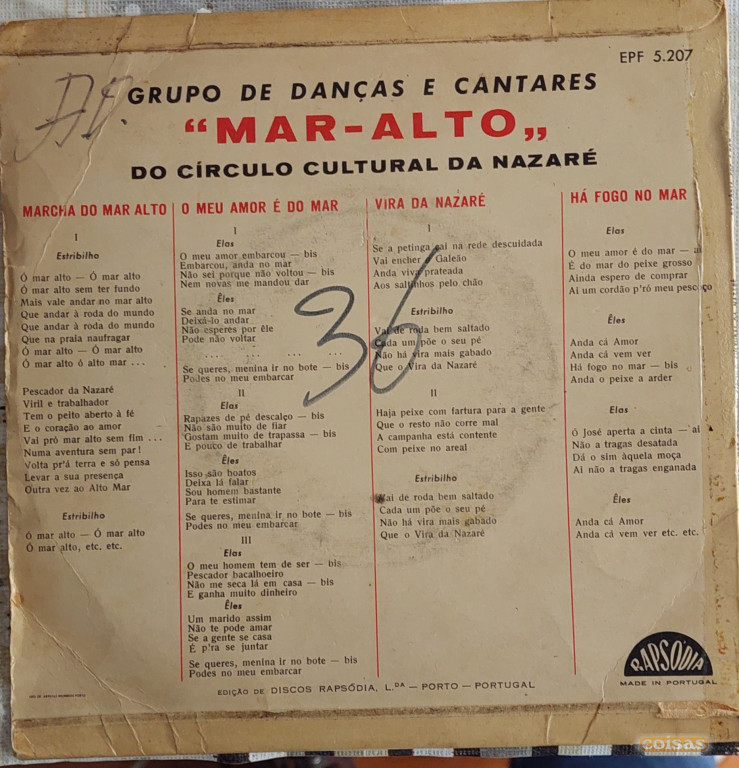 EPF 5.207
GRUPO DE DANÇAS E CANTARES
“MAR-ALTO„
DO CÍRCULO CULTURAL DA NAZARÉ
MARCHA DO MAR ALTO
I
Estribilho
Ó mar alto — Ó mar alto
Ó mar alto sem ter fundo
Mais vale andar no mar alto
Que andar à roda do mundo
Que andar à roda do mundo
Que na praia naufragar
Ó mar alto — Ó mar alto
Ó mar alto ó alto mar ...
Pescador da Nazaré
Viril e trabalhador
Tem o peito aberto à fé
E o coração ao amor
Vai pró mar alto sem fim ...
Numa aventura sem par!
Volta pr'á terra e só pensa
Levar a sua presença
Outra vez ao Alto Mar
Estribilho
Ó mar alto — Ó mar alto
Ó mar alto, etc. etc.
O MEU AMOR É DO MAR
I
Elas
O meu amor embarcou — bis
Embarcou, anda no mar
Não sei porque não voltou — bis
Nem novas me mandou dar
Êles
Se anda no mar
Deixá-lo andar
Não esperes por êle
Pode não voltar
... ... ... ...
Se queres, menina ir no bote — bis
Podes no meu embarcar
II
Elas
Rapazes de pé descalço — bis
Não são muito de fiar
Gostam muito de trapassa — bis
E pouco de trabalhar
Êles
Isso são boatos
Deixa lá falar
Sou homem bastante
Para te estimar
Se queres, menina ir no bote — bis
Podes no meu embarcar
III
Elas
O meu homem tem de ser — bis
Pescador bacalhoeiro
Não me seca lá em casa — bis
E ganha muito dinheiro
Êles
Um marido assim
Não te pode amar
Se a gente se casa
É p'ra se juntar
Se queres, menina ir no bote — bis
Podes no meu embarcar
VIRA DA NAZARÉ
I
Se a petinga sai na rede descuidada
Vai encher o Galeão
Anda viva prateada
Aos saltinhos pelo chão
Estribilho
Vai de roda bem saltado
Cada um põe o seu pé
Não há vira mais gabado
Que o Vira da Nazaré
II
Haja peixe com fartura para a gente
Que o resto não corre mal
A campanha está contente
Com peixe no areal
Estribilho
Vai de roda bem saltado
Cada um põe o seu pé
Não há vira mais gabado
Que o Vira da Nazaré
HÁ FOGO NO MAR
Elas
O meu amor é do mar — ai
É do mar do peixe grosso
Ainda espero de comprar
Ai um cordão p'ró meu pescoço
Êles
Anda cá Amor
Anda cá vem ver
Há fogo no mar — bis
Anda o peixe a arder
Elas
Ó José aperta a cinta — ai
Não a tragas desatada
Dá o sim àquela moça
Ai não a tragas enganada
Êles
Anda cá Amor
Anda cá vem ver etc. etc.
36
RAPSÓDIA
MADE IN PORTUGAL
EDIÇÃO DE DISCOS RAPSÓDIA, L.DA — PORTO — PORTUGAL
coisas